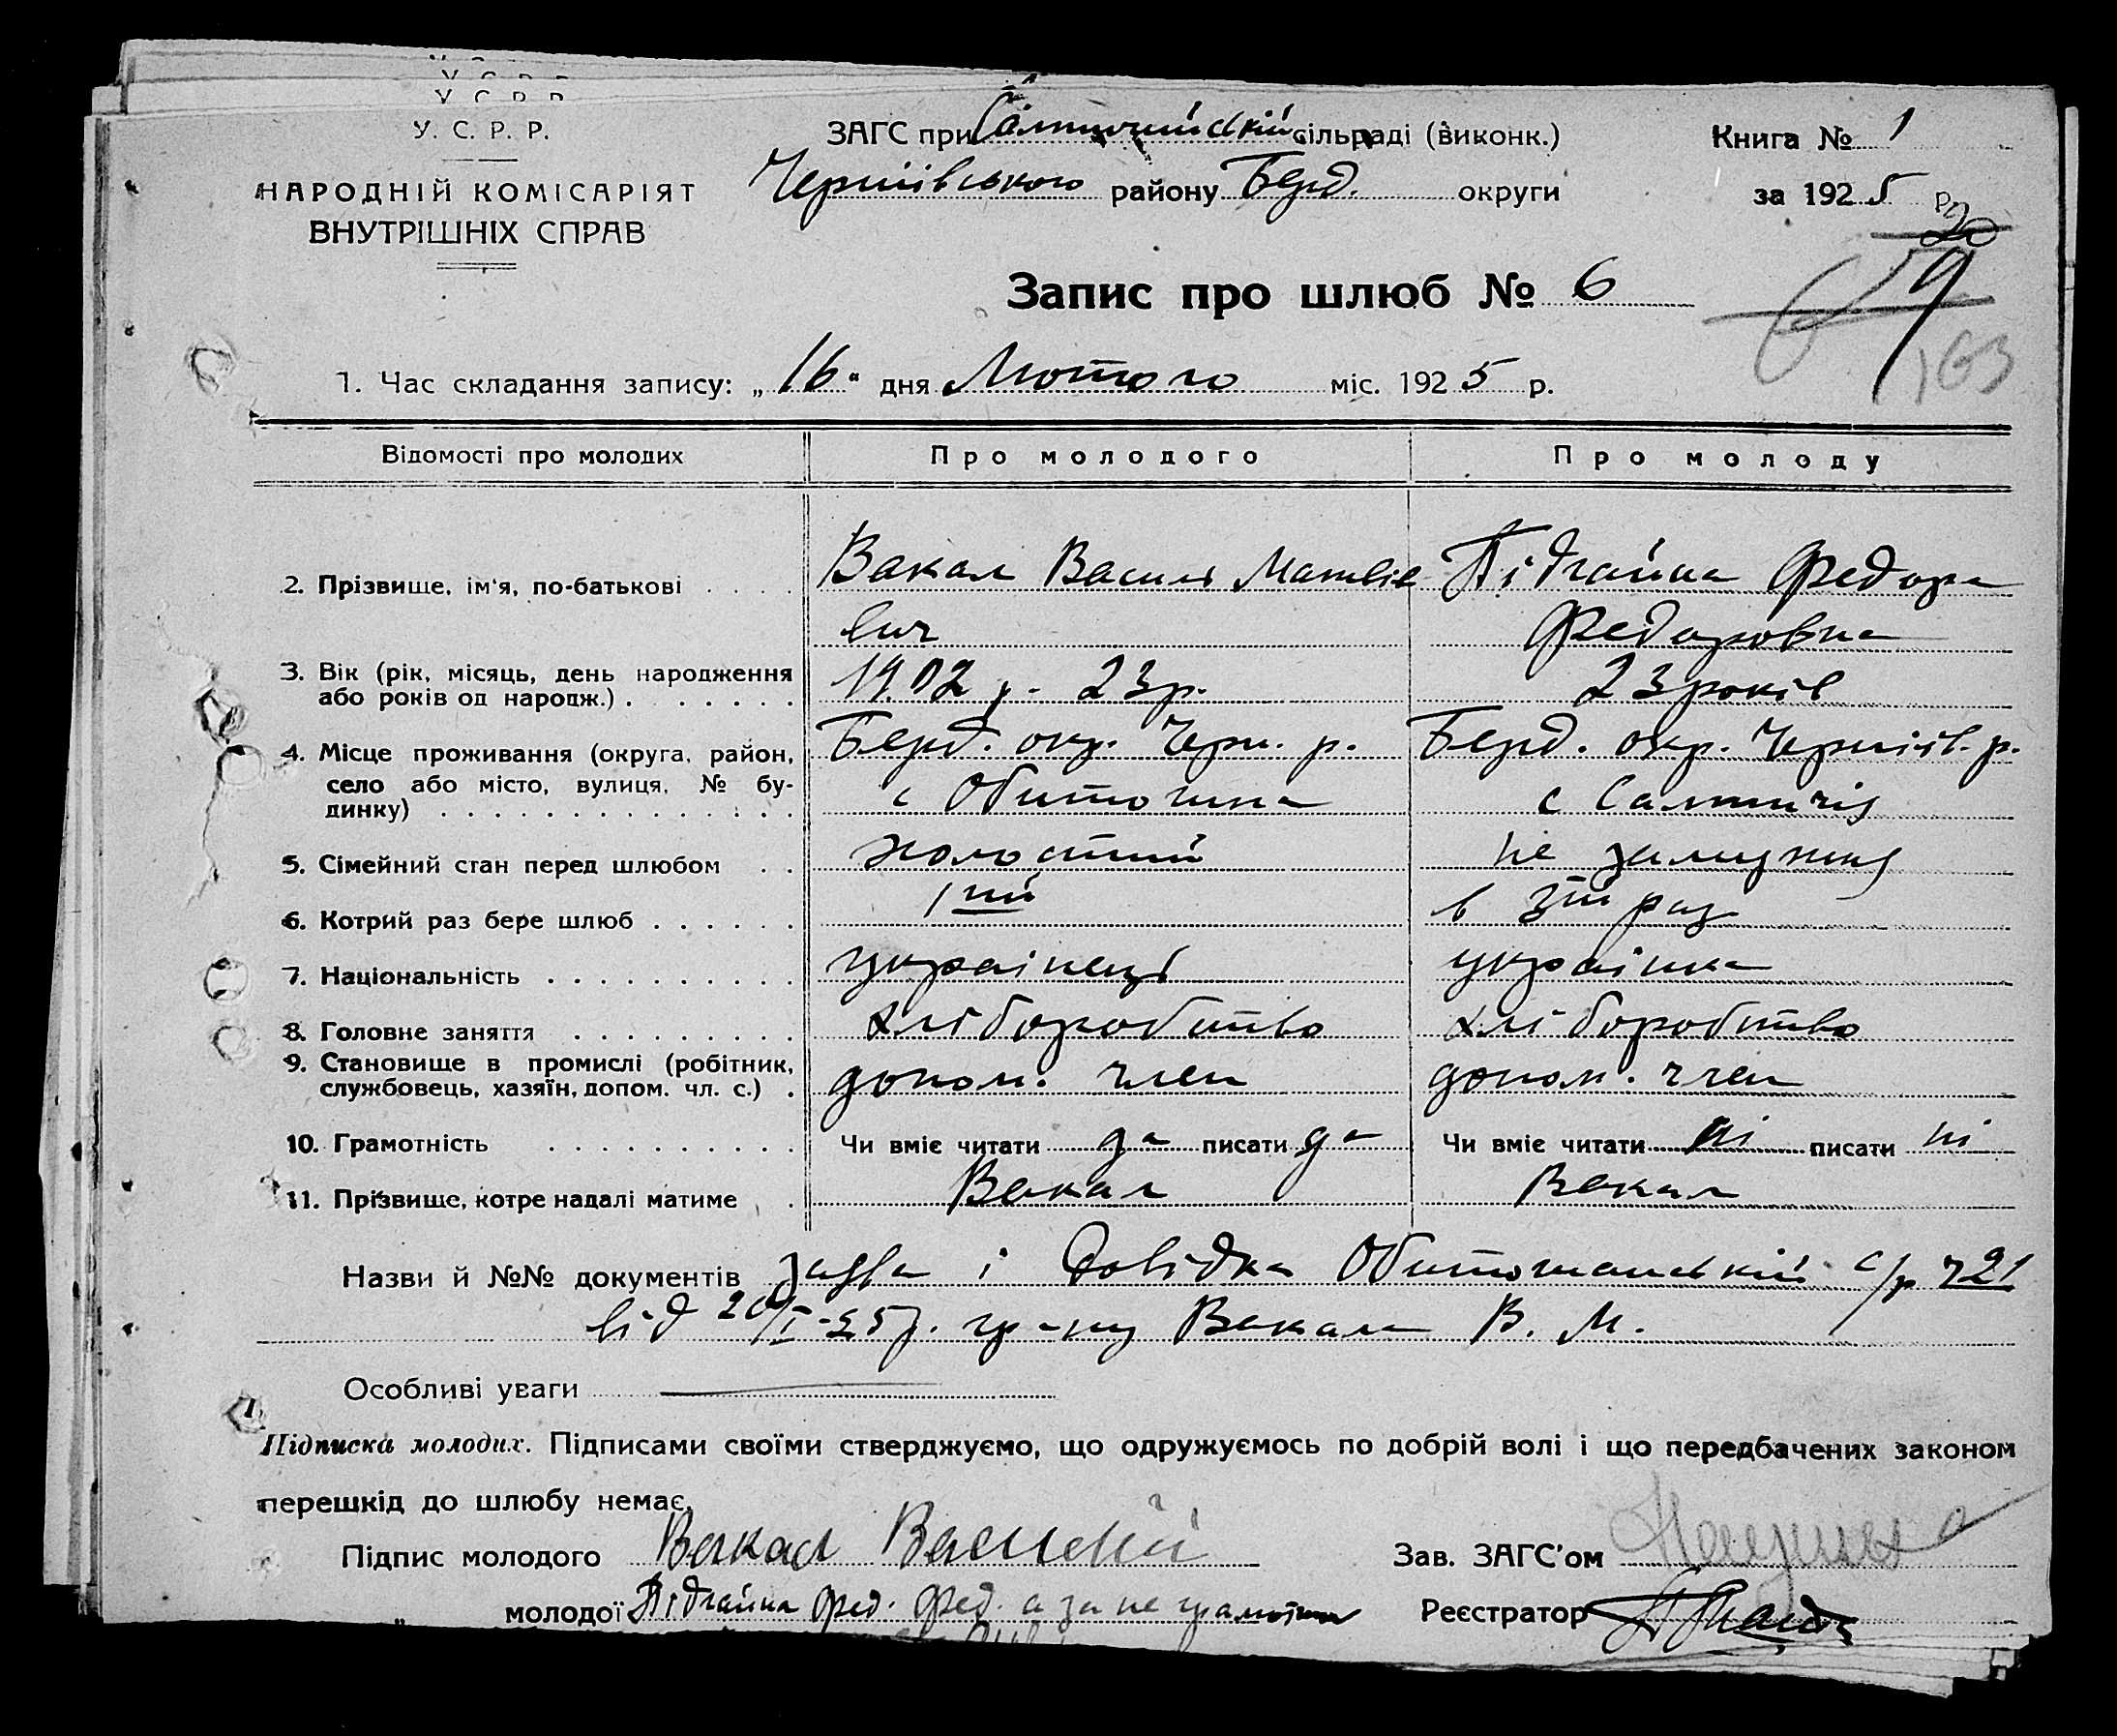 У. С. Р. Р.
НАРОДНІЙ КОМІСАРІЯТ
ВНУТРІШНІХ СПРАВ
ЗАГС при Салтичийській сільраді (виконк.)
Чернігівського району Берд. округи
Книга № 1
за 1925 р.
20
59
163
Запис про шлюб № 6
1. Час складання запису: „16" дня Лютого міс. 1925 р.
Відомості про молодих Про молодого Про молоду
2. Прізвище, ім'я, по-батькові . . . . Вакал Василь Матвіє Підгайна Федора
вич Федоровна
3. Вік (рік, місяць, день народження 1902 р. 23 р. 23 років
або років од народж.) . . . . . .
4. Місце проживання (округа, район, Берд. окр. Черн. р. Берд. окр. Чернігів. р.
село або місто, вулиця, № бу- с Обиточна с Салтичія
динку) . . . . . . . . . . . . . .
5. Сімейний стан перед шлюбом . . холостий не замужня
6. Котрий раз бере шлюб . . . . . . 1ий в 3ій раз
7. Національність . . . . . . . . . . українець українка
8. Головне заняття . . . . . . . . . хліборобство хліборобство
9. Становище в промислі (робітник, допом. член допом. член
службовець, хазяїн, допом. чл. с.) .
10. Грамотність . . . . . . . . . . Чи вміє читати да писати да Чи вміє читати ні писати ні
11. Прізвище, котре надалі матиме . Вакал Вакал
Назви й №№ документів заява і Довідка с/р ч 21
від 20/I-25 р. гр-ну Вакалу В. М.
Особливі уваги
Підписка молодих. Підписами своїми стверджуємо, що одружуємось по добрій волі і що передбачених законом
перешкід до шлюбу немає.
Підпис молодого Вакал Василий Зав. ЗАГС'ом
„ молодої Підгайна Фед. Фед. а за не грамотну Реєстратор